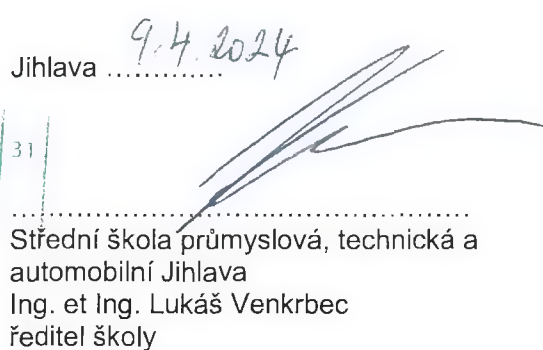 Jihlava ............ 9.4.2024
31
......................................................
Střední škola průmyslová, technická a
automobilní Jihlava
Ing. et Ing. Lukáš Venkrbec
ředitel školy